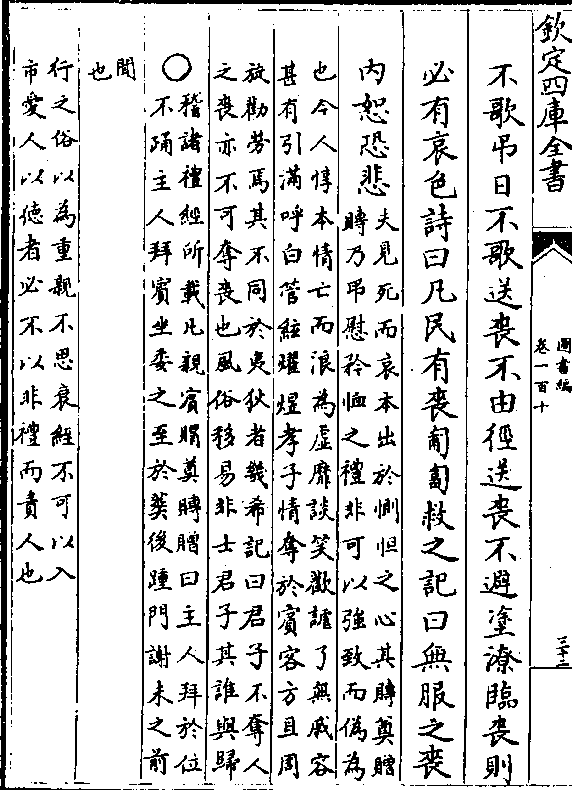 欽定四庫全書
圖書編
卷一百十
三十二
不歌弔日不歌送喪不由徑送喪不避塗潦臨喪則
必有哀色詩曰凡民有喪匍匐救之記曰無服之喪
內恕恐悲
夫見死而哀本出於惻怛之心其賻奠贈
賻乃弔慰矜恤之禮非可以強致而偽為
也今人惇本情亡而浪為虛靡談笑歡謔了無戚容
甚有引滿呼白管絃耀煜孝子情奪於賓客方且周
放勸勞焉其不同於夷狄者幾希記曰君子不奪人
之喪亦不可奪喪也風俗移易非士君子其誰與歸
○稽諸禮經所載凡親賓賵奠賻贈曰主人拜於位
不踊主人拜賓坐委之至於葬後踵門謝未之前
聞
也
行之俗以為重親不思衰絰不可以入
市愛人以德者必不以非禮而責人也